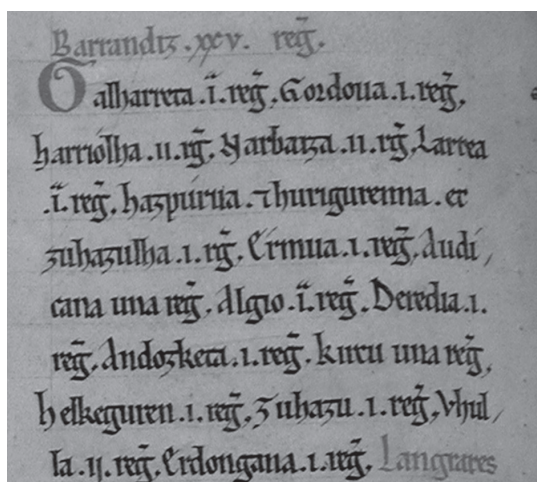 Barrandiz .xxv. reg̃.
Galharreta .i. reg̃. Gordoua .i. reg̃.
harriolha .ii. rg̃. Narbaiza .ii. rg̃. Larrea
.i. reg̃. hazpurua. ⁊ hurigurenna. et
zuhazulha .i. rg̃. Ermua .i. reg̃. Audi,
cana una reg̃. Algio .i. reg̃. Deredia .i.
reg̃. Andozketa .i. reg̃. kircu una reg̃,
helkeguren .i. reg̃. Zuhazu .i. reg̃. Vhul,
la .ii. reg̃. Erdongana .i. reg̃. Langrares